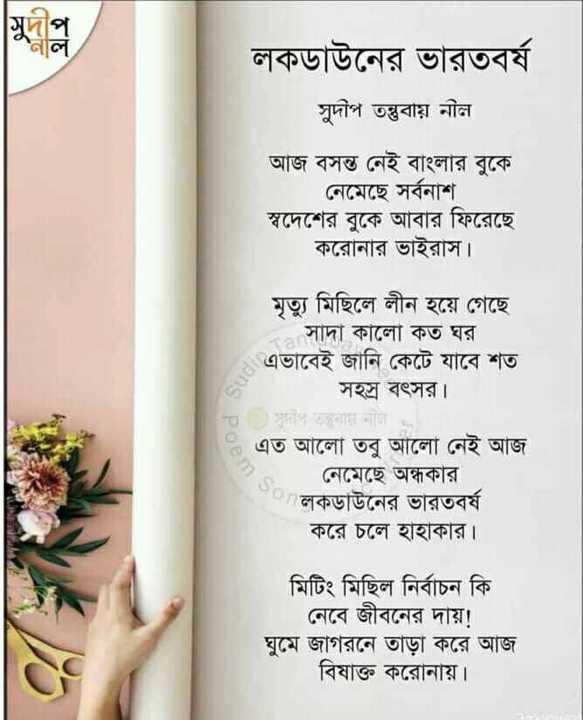 সুদীপ
নীল
লকডাউনের ভারতবর্ষ
সুদীপ তন্তুবায় নীল
আজ বসন্ত নেই বাংলার বুকে
নেমেছে সর্বনাশ
স্বদেশের বুকে আবার ফিরেছে
করোনার ভাইরাস।
মৃত্যু মিছিলে লীন হয়ে গেছে
সাদা কালো কত ঘর
এভাবেই জানি কেটে যাবে শত
সহস্র বৎসর।
সুদীপ তন্তুবায় নীল
এত আলো তবু আলো নেই আজ
নেমেছে অন্ধকার
লকডাউনের ভারতবর্ষ
করে চলে হাহাকার।
মিটিং মিছিল নির্বাচন কি
নেবে জীবনের দায়!
ঘুমে জাগরনে তাড়া করে আজ
বিষাক্ত করোনায়।